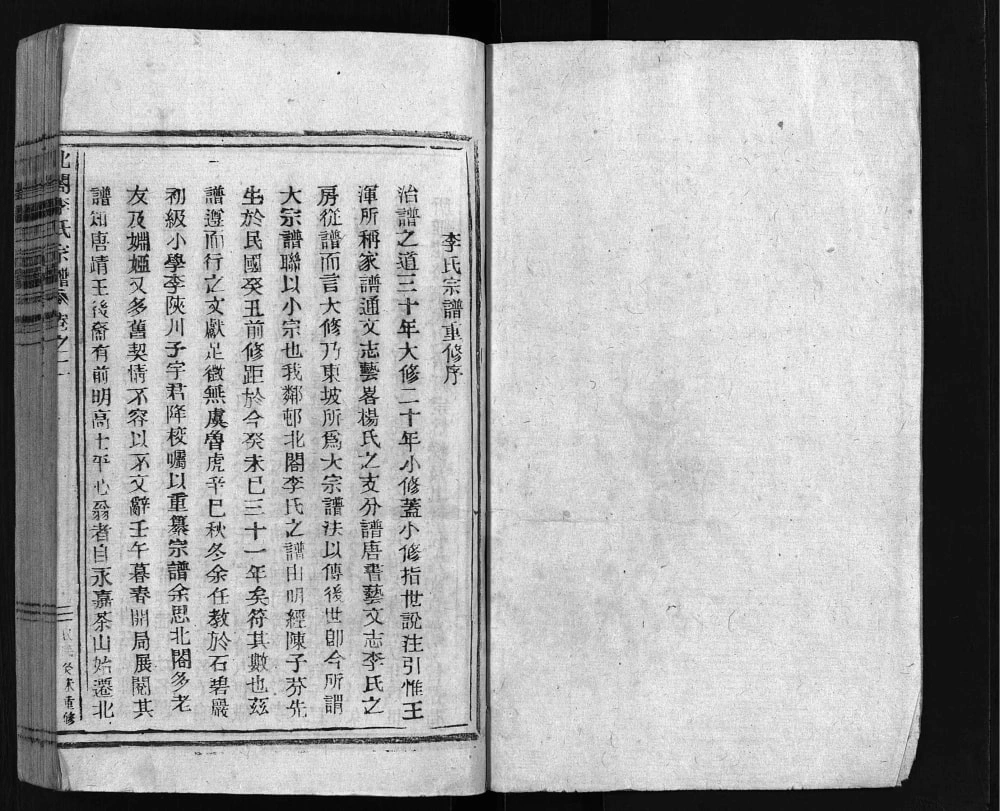 李氏宗譜重修序
治譜之道三十年大修二十年小修蓋小修指世說注引惟王
渾所稱家譜通文志藝畧楊氏之支分譜唐書藝文志李氏之
房從譜而言大修乃東坡所爲大宗譜法以傳後世卽今所謂
大宗譜聯以小宗也我鄰邨北閣李氏之譜由明經陳子芬先
生於民國癸丑前修距於今癸未已三十一年矣符其數也茲
譜遵而行之文獻足徵無虞魯虎辛巳秋冬余任教於石碧巖
初級小學李陝川子宇君降校囑以重纂宗譜余思北閣多老
友及姻婭又多舊契情不容以不文辭壬午暮春開局展閱其
譜知唐靖王後裔有前明高士平心翁者自永嘉茶山始遷北
北閣李氏宗譜 卷之一
癸未重修